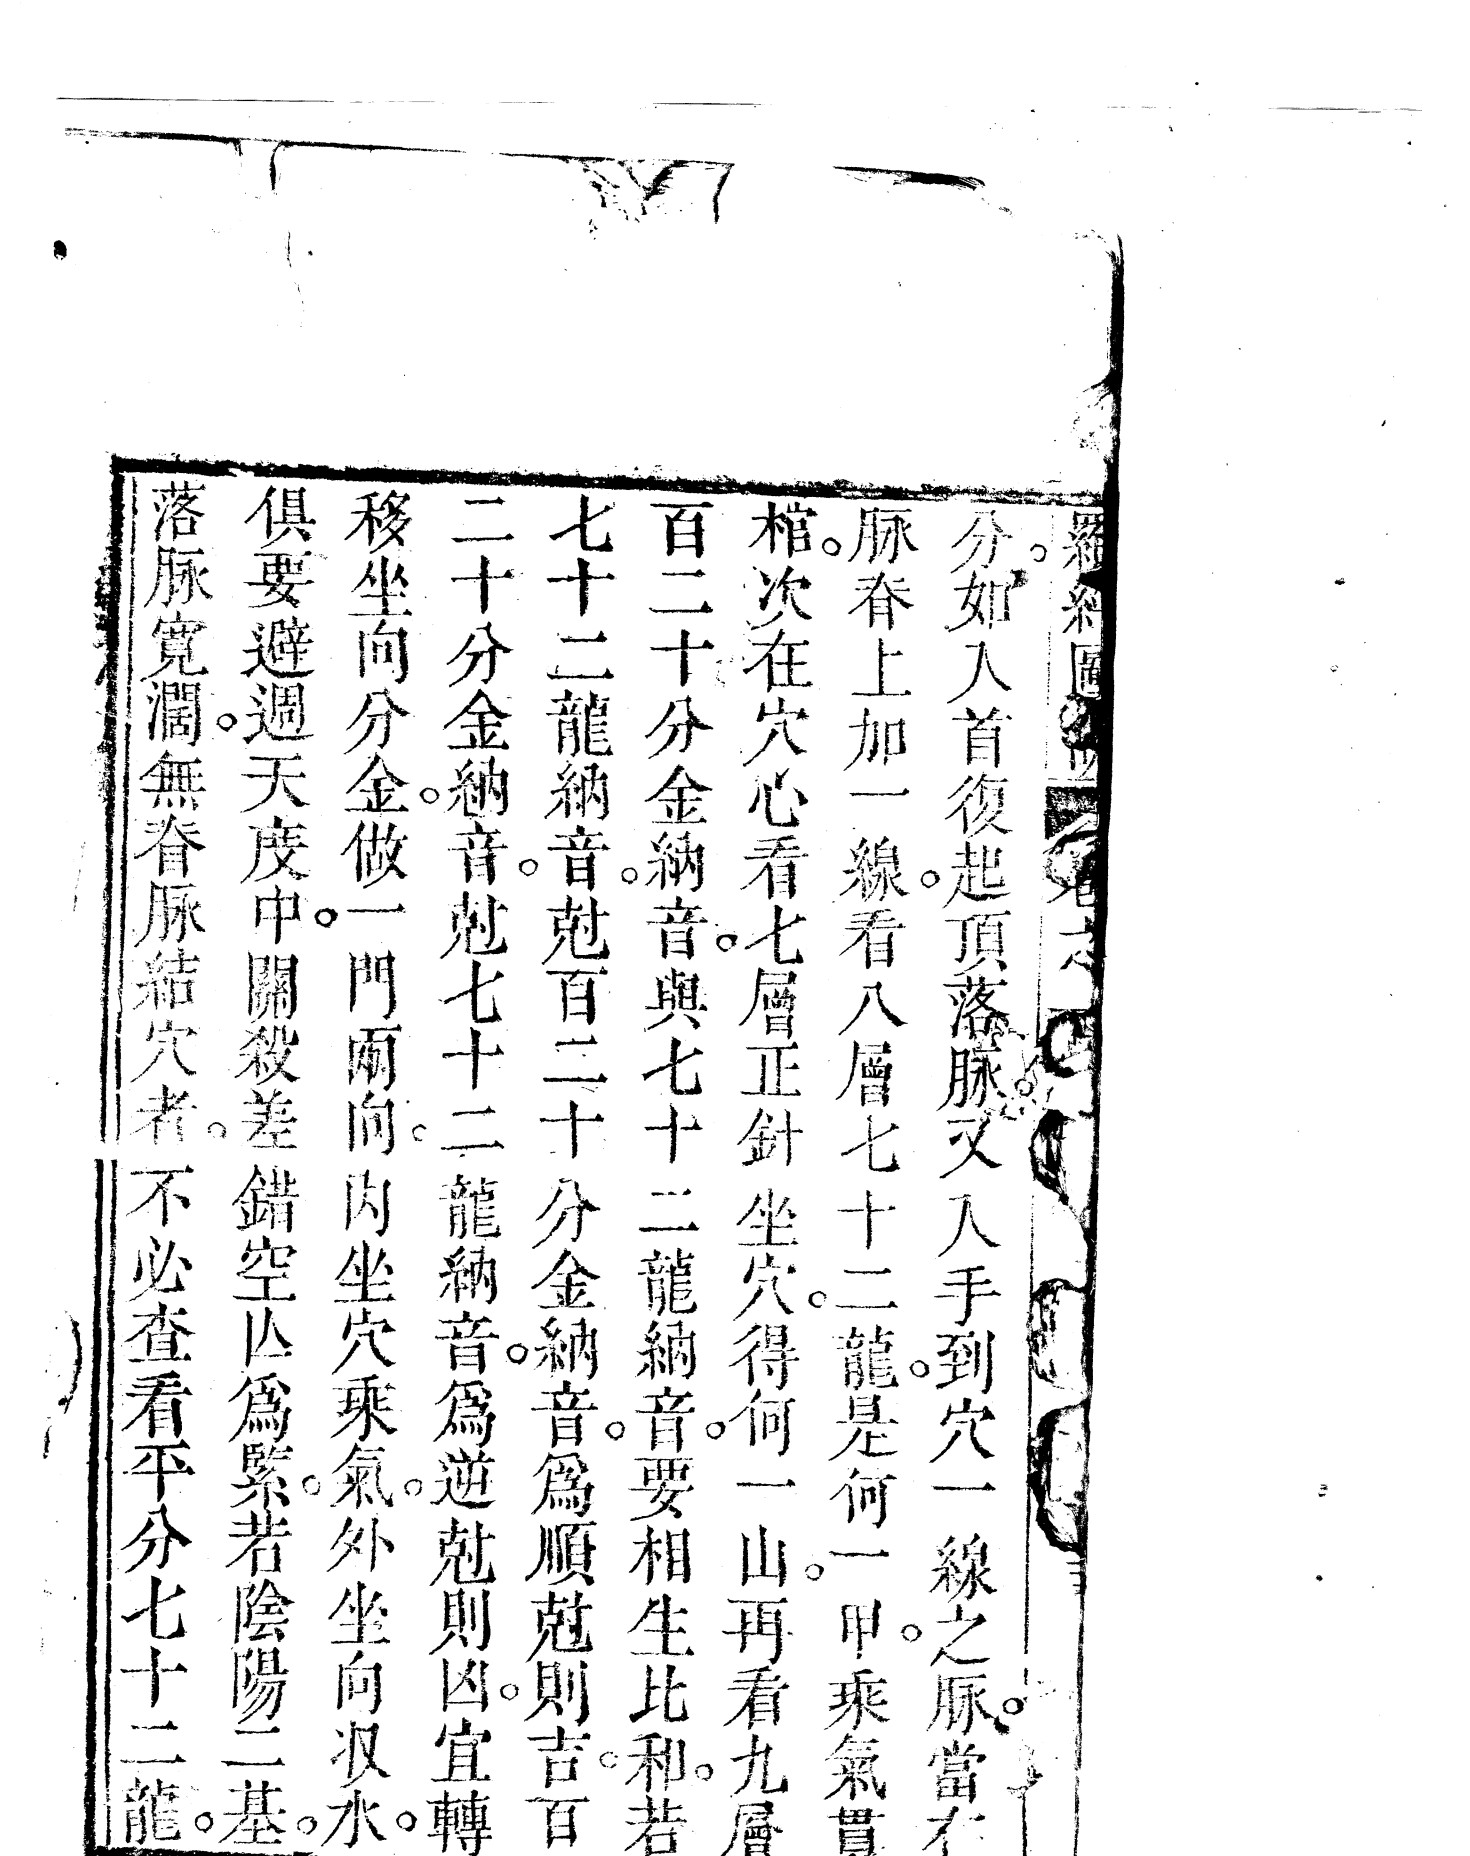 羅經圖
分。如入首復起頂落脉。又入手到穴一線之脉。當在
脉脊上加一線。看八層七十二龍。是何一甲。乘氣貫
棺。次在穴心看七層正針坐穴。得何一山。再看九層
百二十分金納音。與七十二龍納音。要相生比和。若
七十二龍納音。尅百二十分金納音。爲順尅則吉。百
二十分金納音。尅七十二龍納音。爲逆尅則凶。宜轉
移坐向分金。做一門兩向。内坐穴乘氣。外坐向収水。
俱要避週天度中。關殺差錯空亾爲緊。若陰陽二基。
落脉寛濶。無脊脉結穴者。不必查看平分七十二龍。